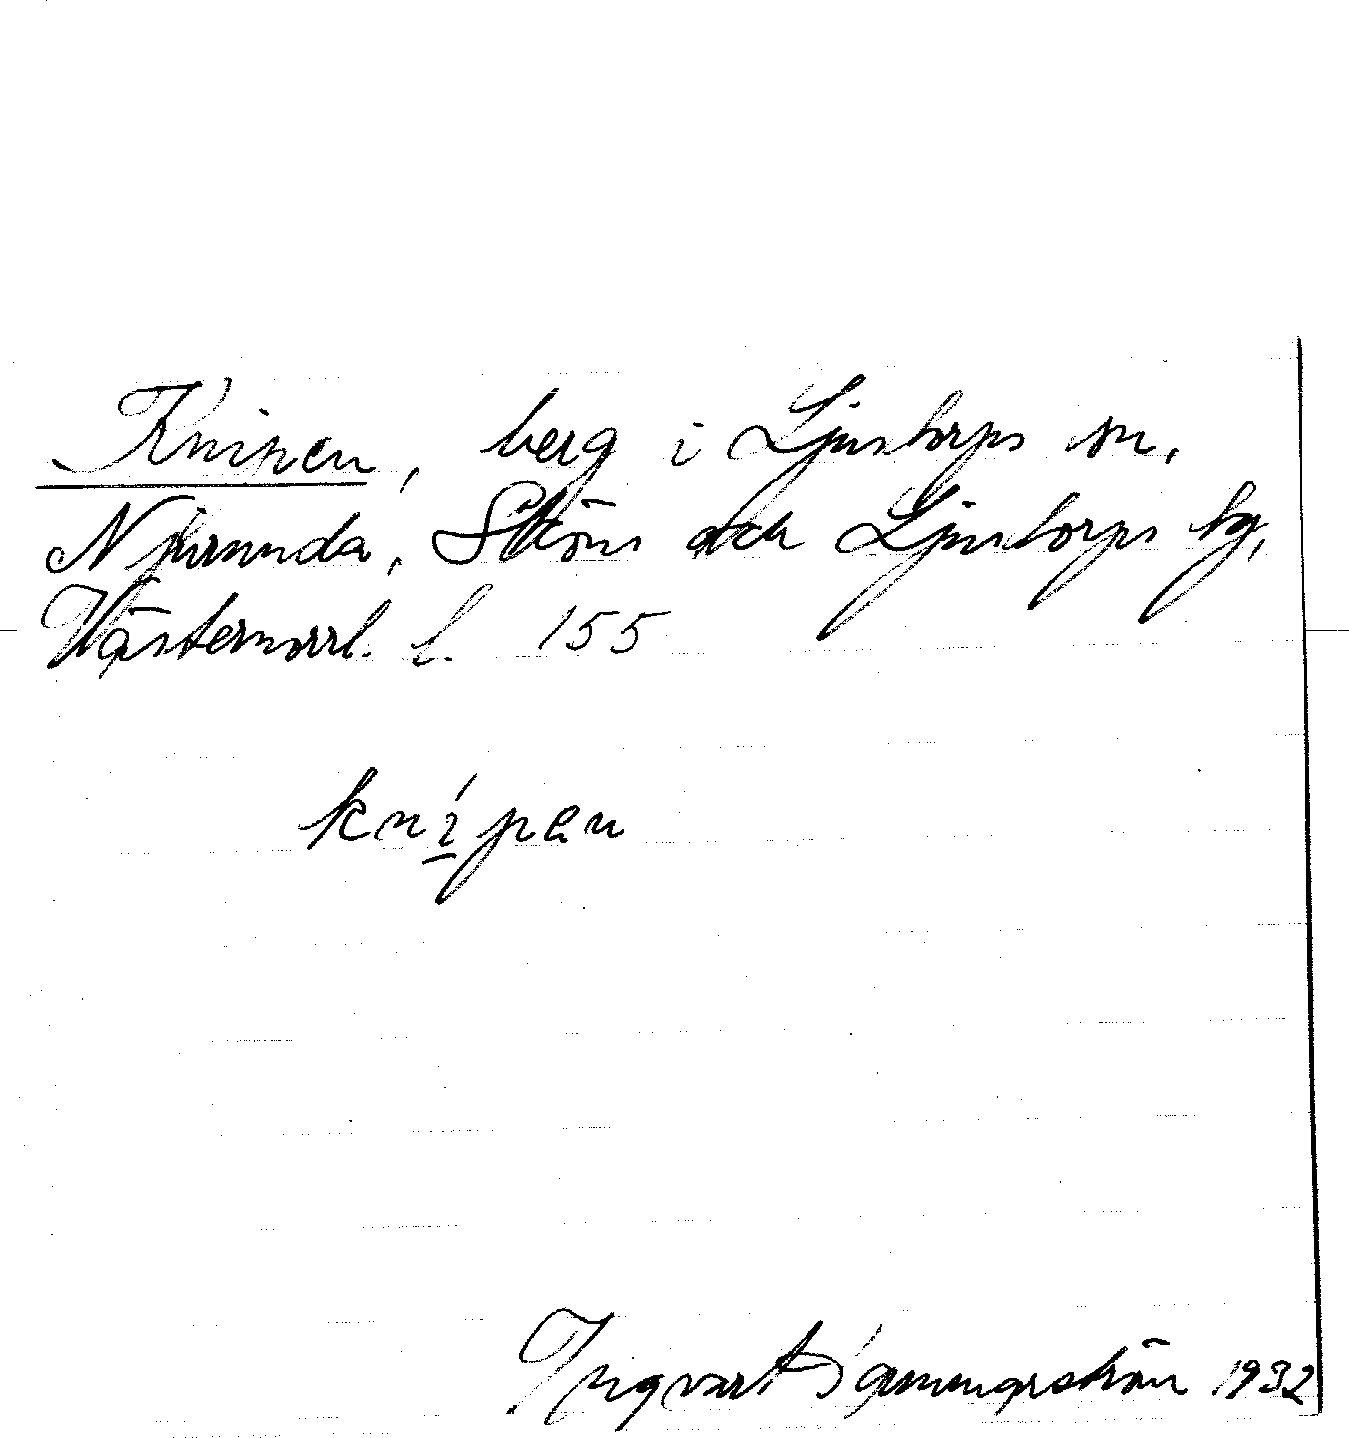 Knipen, berg i Ljustorps sn,
Njurunda, Sköns och Ljustorps tg,
Västernorrl. l. 155
knípen
Ingvart 1932